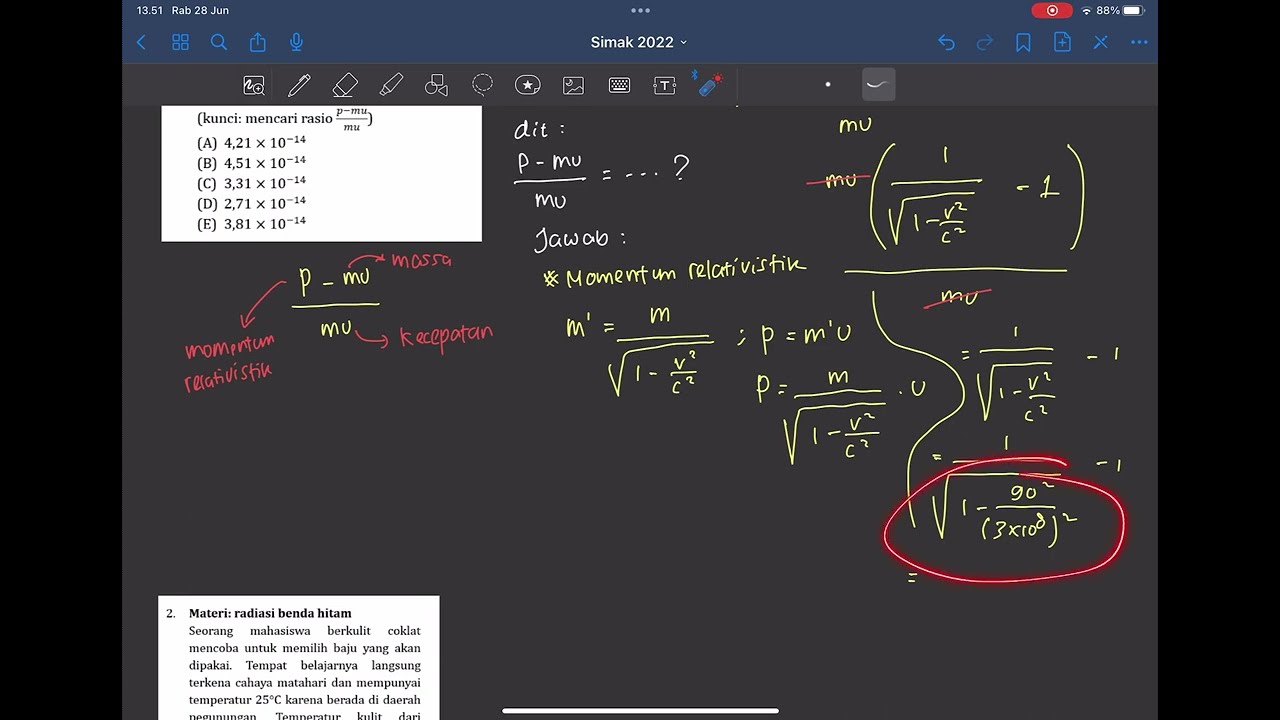 13.51 Rab 28 Jun
88%
Simak 2022
(kunci: mencari rasio \frac{p-mu}{mu})
(A) 4,21 × 10⁻¹⁴
(B) 4,51 × 10⁻¹⁴
(C) 3,31 × 10⁻¹⁴
(D) 2,71 × 10⁻¹⁴
(E) 3,81 × 10⁻¹⁴
p - mu
mu
massa
kecepatan
momentum
relativistik
dit :
\frac{p - mu}{mu} = ---- ?
Jawab :
* Momentum relativistik
m' = \frac{m}{\sqrt{1 - \frac{v²}{c²}}} ; p = m'u
p = \frac{m}{\sqrt{1 - \frac{v²}{c²}}} . u
mu
mu ( \frac{1}{\sqrt{1 - \frac{v²}{c²}}} - 1 )
mu
= \frac{1}{\sqrt{1 - \frac{v²}{c²}}} - 1
= \frac{1}{\sqrt{1 - \frac{90²}{(3x10⁸)²}}} - 1
=
2. Materi: radiasi benda hitam
Seorang mahasiswa berkulit coklat
mencoba untuk memilih baju yang akan
dipakai. Tempat belajarnya langsung
terkena cahaya matahari dan mempunyai
temperatur 25°C karena berada di daerah
pegunungan. Temperatur kulit dari